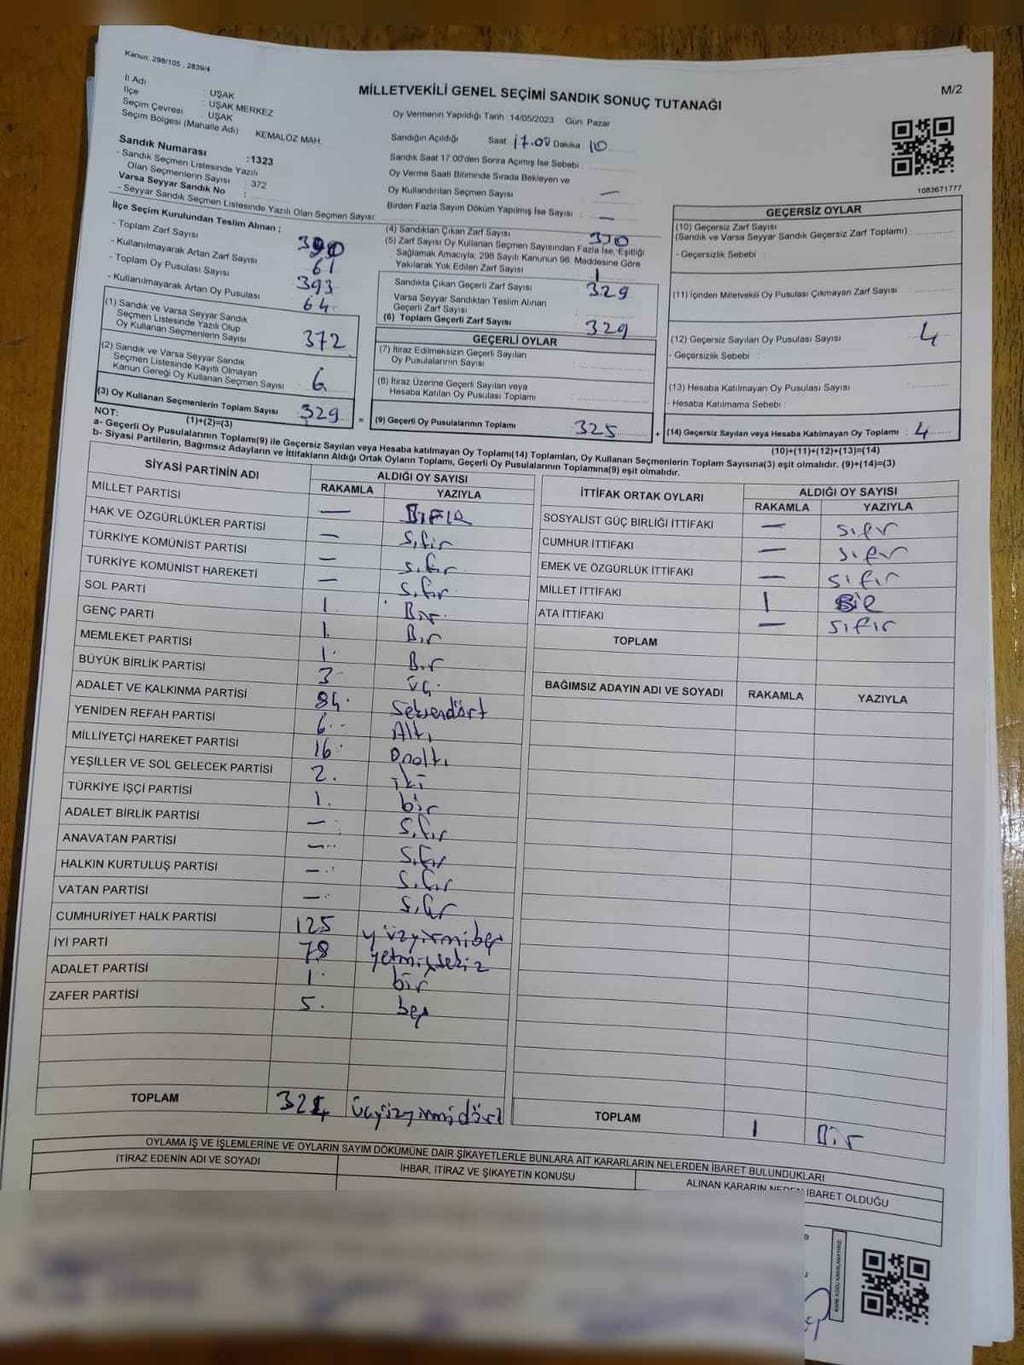 Kanun: 298/105 . 2839/4
M/2
MİLLETVEKİLİ GENEL SEÇİMİ SANDIK SONUÇ TUTANAĞI
İl Adı : UŞAK
İlçe : UŞAK MERKEZ
Seçim Çevresi : UŞAK
Seçim Bölgesi (Mahalle Adı) KEMALÖZ MAH.
Sandık Numarası :1323
- Sandık Seçmen Listesinde Yazılı
Olan Seçmenlerin Sayısı : 372
Varsa Seyyar Sandık No :
- Seyyar Sandık Seçmen Listesinde Yazılı Olan Seçmen Sayısı:
Oy Vermenin Yapıldığı Tarih :14/05/2023 Gün: Pazar
Sandığın Açıldığı Saat 17.00 Dakika 10
Sandık Saat 17.00'den Sonra Açımış İse Sebebi
Oy Verme Saati Bitiminde Sırada Bekleyen ve
Oy Kullandırılan Seçmen Sayısı —
Birden Fazla Sayım Döküm Yapılmış İse Sayısı : —
1083671777
İlçe Seçim Kurulundan Teslim Alınan ;
- Toplam Zarf Sayısı
- Kullanılmayarak Artan Zarf Sayısı 61
- Toplam Oy Pusulası Sayısı 393
- Kullanılmayarak Artan Oy Pusulası 64
(1) Sandık ve Varsa Seyyar Sandık
Seçmen Listesinde Yazılı Olup
Oy Kullanan Seçmenlerin Sayısı 372
(2) Sandık ve Varsa Seyyar Sandık
Seçmen Listesinde Kayıtlı Olmayan
Kanun Gereği Oy Kullanan Seçmen Sayısı 6
(3) Oy Kullanan Seçmenlerin Toplam Sayısı 329
(1)+(2)=(3)
(4) Sandıktan Çıkan Zarf Sayısı 330
(5) Zarf Sayısı Oy Kullanan Seçmen Sayısından Fazla İse, Eşitliği
Sağlamak Amacıyla, 298 Sayılı Kanunun 98. Maddesine Göre
Yakılarak Yok Edilen Zarf Sayısı 1
Sandıkta Çıkan Geçerli Zarf Sayısı 329
Varsa Seyyar Sandıktan Teslim Alınan
Geçerli Zarf Sayısı
(6) Toplam Geçerli Zarf Sayısı 329
GEÇERLİ OYLAR
(7) İtiraz Edilmeksizin Geçerli Sayılan
Oy Pusulalarının Sayısı :
(8) İtiraz Üzerine Geçerli Sayılan veya
Hesaba Katılan Oy Pusulası Toplamı
= (9) Geçerli Oy Pusulalarının Toplamı 325
GEÇERSİZ OYLAR
(10) Geçersiz Zarf Sayısı
(Sandık ve Varsa Seyyar Sandık Geçersiz Zarf Toplamı)
- Geçersizlik Sebebi :
(11) İçinden Milletvekili Oy Pusulası Çıkmayan Zarf Sayısı
(12) Geçersiz Sayılan Oy Pusulası Sayısı : 4
- Geçersizlik Sebebi :
(13) Hesaba Katılmayan Oy Pusulası Sayısı
- Hesaba Katılmama Sebebi :
+ (14) Geçersiz Sayılan veya Hesaba Katılmayan Oy Toplamı 4
(10)+(11)+(12)+(13)=(14)
NOT:
a- Geçerli Oy Pusulalarının Toplamı(9) ile Geçersiz Sayılan veya Hesaba katılmayan Oy Toplamı(14) Toplamları, Oy Kullanan Seçmenlerin Toplam Sayısına(3) eşit olmalıdır. (9)+(14)=(3)
b- Siyasi Partilerin, Bağımsız Adayların ve İttifakların Aldığı Ortak Oyların Toplamı, Geçerli Oy Pusulalarının Toplamına(9) eşit olmalıdır.
SİYASİ PARTİNİN ADI
ALDIĞI OY SAYISI
RAKAMLA YAZIYLA
MİLLET PARTİSİ —
HAK VE ÖZGÜRLÜKLER PARTİSİ — Sıfır
TÜRKİYE KOMÜNİST PARTİSİ — sıfır
TÜRKİYE KOMÜNİST HAREKETİ — sıfır
SOL PARTİ 1 Bir
GENÇ PARTİ 1. Bir
MEMLEKET PARTİSİ 1. Bir
BÜYÜK BİRLİK PARTİSİ 3 üç.
ADALET VE KALKINMA PARTİSİ 84. Seksendört
YENİDEN REFAH PARTİSİ 6 Altı
MİLLİYETÇİ HAREKET PARTİSİ 16 Onaltı
YEŞİLLER VE SOL GELECEK PARTİSİ 2. iki
TÜRKİYE İŞÇİ PARTİSİ 1. bir
ADALET BİRLİK PARTİSİ — Sıfır
ANAVATAN PARTİSİ — Sıfır
HALKIN KURTULUŞ PARTİSİ — Sıfır
VATAN PARTİSİ — Sıfır
CUMHURİYET HALK PARTİSİ 125 yüzyirmibeş
İYİ PARTİ 78 yetmişsekiz
ADALET PARTİSİ 1 bir
ZAFER PARTİSİ 5. beş
TOPLAM 324 üçyüzyirmidört
İTTİFAK ORTAK OYLARI
ALDIĞI OY SAYISI
RAKAMLA YAZIYLA
SOSYALİST GÜÇ BİRLİĞİ İTTİFAKI — sıfır
CUMHUR İTTİFAKI — sıfır
EMEK VE ÖZGÜRLÜK İTTİFAKI — sıfır
MİLLET İTTİFAKI 1
ATA İTTİFAKI — sıfır
TOPLAM
BAĞIMSIZ ADAYIN ADI VE SOYADI RAKAMLA YAZIYLA
TOPLAM 1 Bir
OYLAMA İŞ VE İŞLEMLERİNE VE OYLARIN SAYIM DÖKÜMÜNE DAİR ŞİKAYETLERLE BUNLARA AİT KARARLARIN NELERDEN İBARET BULUNDUKLARI
İTİRAZ EDENİN ADI VE SOYADI
İHBAR, İTİRAZ VE ŞİKAYETİN KONUSU
ALINAN KARARIN NEDEN İBARET OLDUĞU